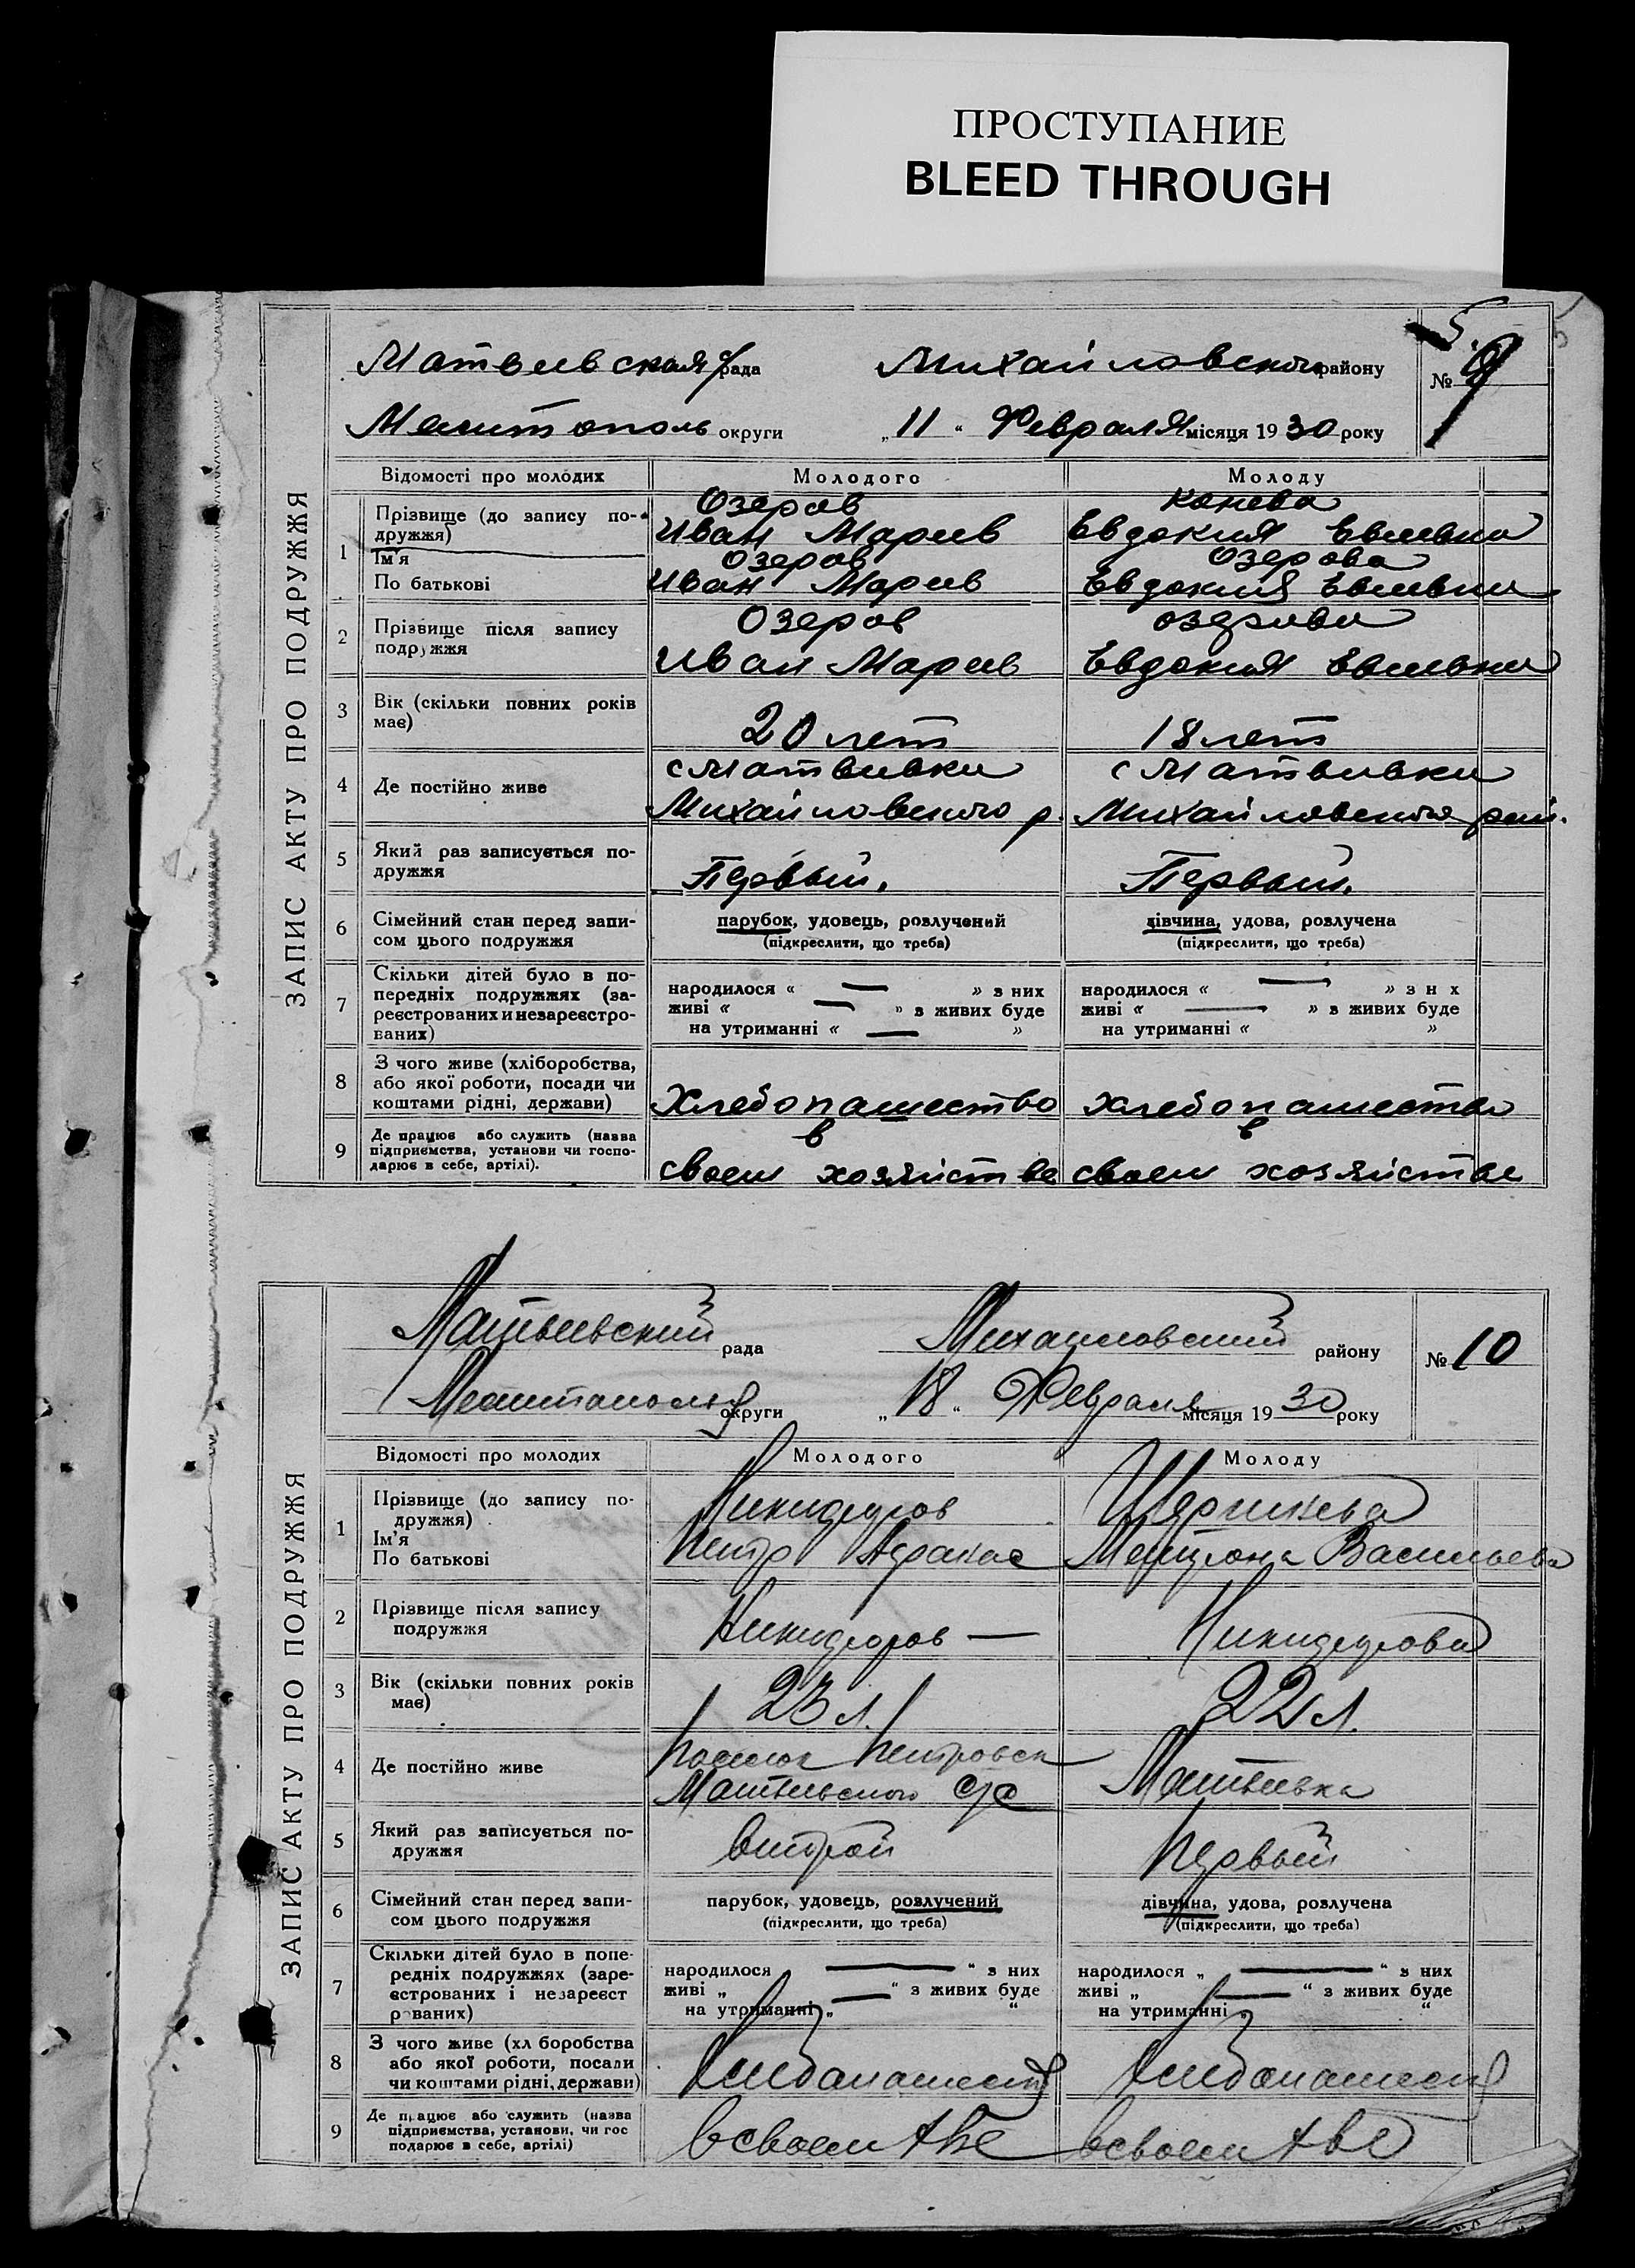 ПРОСТУПАНИЕ
BLEED THROUGH
5
ЗАПИС АКТУ ПРО ПОДРУЖЖЯ
Матвеевская рада Михайловского району № 9
Мелитополь округи „11“ Февраля місяця 1930 року
Відомості про молодих Молодого Молоду
1 Прізвище (до запису по-дружжя) Озеров Конева
Іван Мареев Евдокия
Ім'я Озеров Озерова
По батькові Иван Мареев Евдокия
2 Прізвище після запису Озеров Озерова
подружжя Иван Мареев Евдокия
3 Вік (скільки повних років
має) 20 лет 18 лет
4 Де постійно живе с Матвивки с Матвивки
Михайловского р. Михайловского рай.
5 Який раз записується по-
дружжя Первый. Первый.
6 Сімейний стан перед запи- парубок, удовець, розлучений дівчина, удова, розлучена
сом цього подружжя (підкреслити, що треба) (підкреслити, що треба)
7 Скільки дітей було в по-
передніх подружжях (за- народилося « — » з них народилося « — » з н х
реєстрованих и незареєстро- живі « — » з живих буде живі « — » з живих буде
ваних) на утриманні « — » на утриманні « »
8 З чого живе (хліборобства,
або якої роботи, посади чи
коштами рідні, держави) Хлебопашество хлебопашество
9 Де працює або служить (назва в в
підприємства, установи чи госпо-
дарює в себе, артілі). своем хозяйстве своем хозяйстве
ЗАПИС АКТУ ПРО ПОДРУЖЖЯ
Матвеевский рада Михайловский району № 10
округи „18“ Февраля місяця 1930 року
Відомості про молодих Молодого Молоду
1 Прізвище (до запису по-
дружжя) Никифоров
Ім'я
По батькові Петр Васильева
2 Прізвище після запису
подружжя Никифоров — Никифорова
3 Вік (скільки повних років
має) 23 л. 22 л.
4 Де постійно живе Поселок Петровск
Матвеевского с/с Матвеевка
5 Який раз записується по-
дружжя второй Первый
6 Сімейний стан перед запи- парубок, удовець, розлучений дівчина, удова, розлучена
сом цього подружжя (підкреслити, що треба) (підкреслити, що треба)
7 Скільки дітей було в попе-
редніх подружжях (заре- народилося — “ з них народилося „ — “ з них
єстрованих і незареєст живі „ — “ з живих буде живі „ — “ з живих буде
рованих) на утриманні „ “ на утриманні „ “
8 З чого живе (хл боробства
або якої роботи, посади
чи коштами рідні, держави)
9 Де працює або служить (назва
підприємства, установи, чи гос
подарює в себе, артілі) в своем в своем